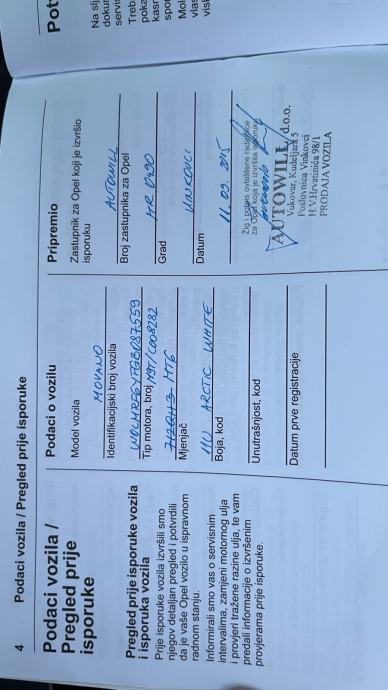 4 Podaci vozila / Pregled prije isporuke
Podaci vozila /
Pregled prije
isporuke
Pregled prije isporuke vozila
i isporuka vozila
Prije isporuke vozila izvršili smo
njegov detaljan pregled i potvrdili
da je vaše Opel vozilo u ispravnom
radnom stanju.
Informirali smo vas o servisnim
intervalima, zamjeni motornog ulja
i provjeri tražene razine ulja, te vam
predali informacije o izvršenim
provjerama prije isporuke.
Podaci o vozilu
Model vozila
MOVANO
Identifikacijski broj vozila
Tip motora, broj M9T/C008282
MT6
Mjenjač
11U ARCTIC WHITE
Boja, kod
Unutrašnjost, kod
Datum prve registracije
Pripremio
Zastupnik za Opel koji je izvršio
isporuku
AUTOWILL
Broj zastupnika za Opel
HR 0490
Grad
VINKOVCI
Datum
11.03.2015
Žig i potpis ovlaštene radionice
za Opel koja je izvršila isporuku
AUTOWILL d.o.o.
Vukovar, Kudeljara 5
Poslovnica Vinkovci
H.V.Hrvatinića 98/1
PRODAJA VOZILA
Na slj
servis
Treb
poka
spor